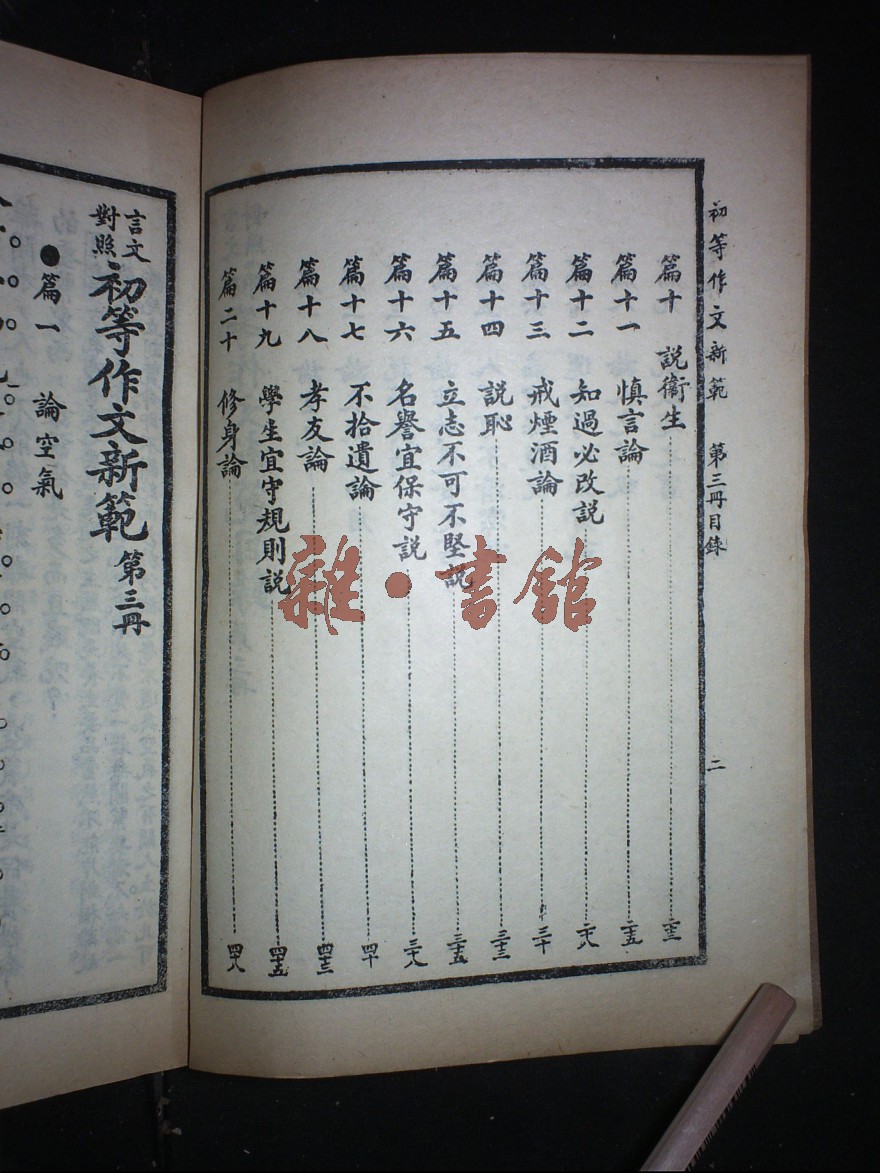 初等作文新範 第三冊目錄 二
篇十 説衞生 二三
篇十一 慎言論 二五
篇十二 知過必改説 二八
篇十三 戒煙酒論 三十
篇十四 説恥 三三
篇十五 立志不可不堅説 三五
篇十六 名譽宜保守説 三八
篇十七 不拾遺論 四十
篇十八 孝友論 四三
篇十九 學生宜守規則説 四五
篇二十 修身論 四八
雜·書館
言文對照 初等作文新範 第三冊
●篇一 論空氣